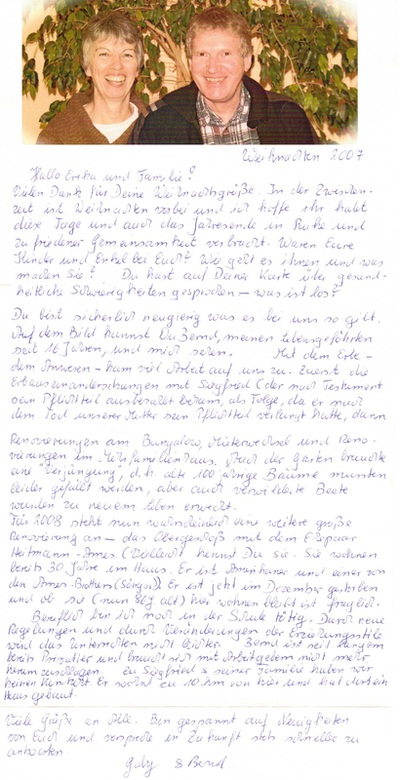 Weihnachten 2007
Hallo Erika und Familie!
Vielen Dank für Deine Weihnachtsgrüße. In der Zwischen-
zeit ist Weihnachten vorbei und ich hoffe ihr habt
diese Tage und auch das Jahresende in Ruhe und
zufriedener Gemeinsamkeit verbracht. Waren Eure
Kinder und Enkel bei Euch? Wie geht es ihnen und was
machen sie? Du hast auf Deiner Karte über gesund-
heitliche Schwierigkeiten gesprochen – was ist los?
Du bist sicherlich neugierig was es bei uns so gibt.
Auf dem Bild kannst Du Bernd, meinen Lebensgefährten
seit 16 Jahren, und mich sehen. Mit dem Erbe –
dem Anwesen – kam viel Arbeit auf uns zu. Zuerst die
Erbauseinandersetzungen mit Siegfried (der nach Testament
sein Pflichtteil ausbezahlt bekam, als Folge, da er nach
dem Tod unserer Mutter sein Pflichtteil verlangt hatte, dann
Renovierungen am Bungalow, Mieterwechsel und Reno-
vierungen im Mehrfamilienhaus. Auch der Garten brauchte
eine "Verjüngung", d.h. alte 100 jährige Bäume mussten
leider gefällt werden, aber auch verwilderte Beete
wurden zu neuem Leben erweckt.
Für 2008 steht nun wahrscheinlich eine weitere große
Renovierung an – das Obergeschoß mit dem Ehepaar
Heitmann-Ames (Vielleicht kennst Du sie. Sie wohnen
bereits 30 Jahre im Haus. Er ist Amerikaner und einer von
den Ames-Brothers (Sänger)) Er ist jetzt im Dezember gestorben
und ob sie (nun 86J alt) hier wohnen bleibt ist fraglich.
Beruflich bin ich noch in der Schule tätig. Durch neue
Regelungen und durch Veränderungen der Erziehungsstile
wird das Unterrichten nicht leichter. Bernd ist seit langem
bereits Privatier und braucht sich mit Arbeitgebern nicht mehr
herumzuschlagen. Zu Siegfried & seiner Familie haben wir
keinen Kontakt. Er wohnt ca 10 km von hier und hat dort ein
Haus gebaut.
Viele Grüße an Alle. Bin gespannt auf Neuigkeiten
von Euch und verspreche in Zukunft sich schneller zu
antworten.
Gaby & Bernd